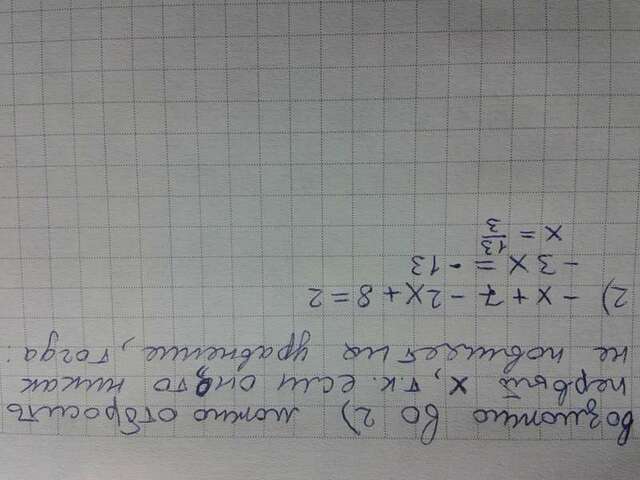 возможно во 2) можно отбросить
первый x, т.к. если он 0, то никак
не повлияет на уравнение, тогда:
2) -x+7-2x+8=2
-3x=-13
x = 13/3